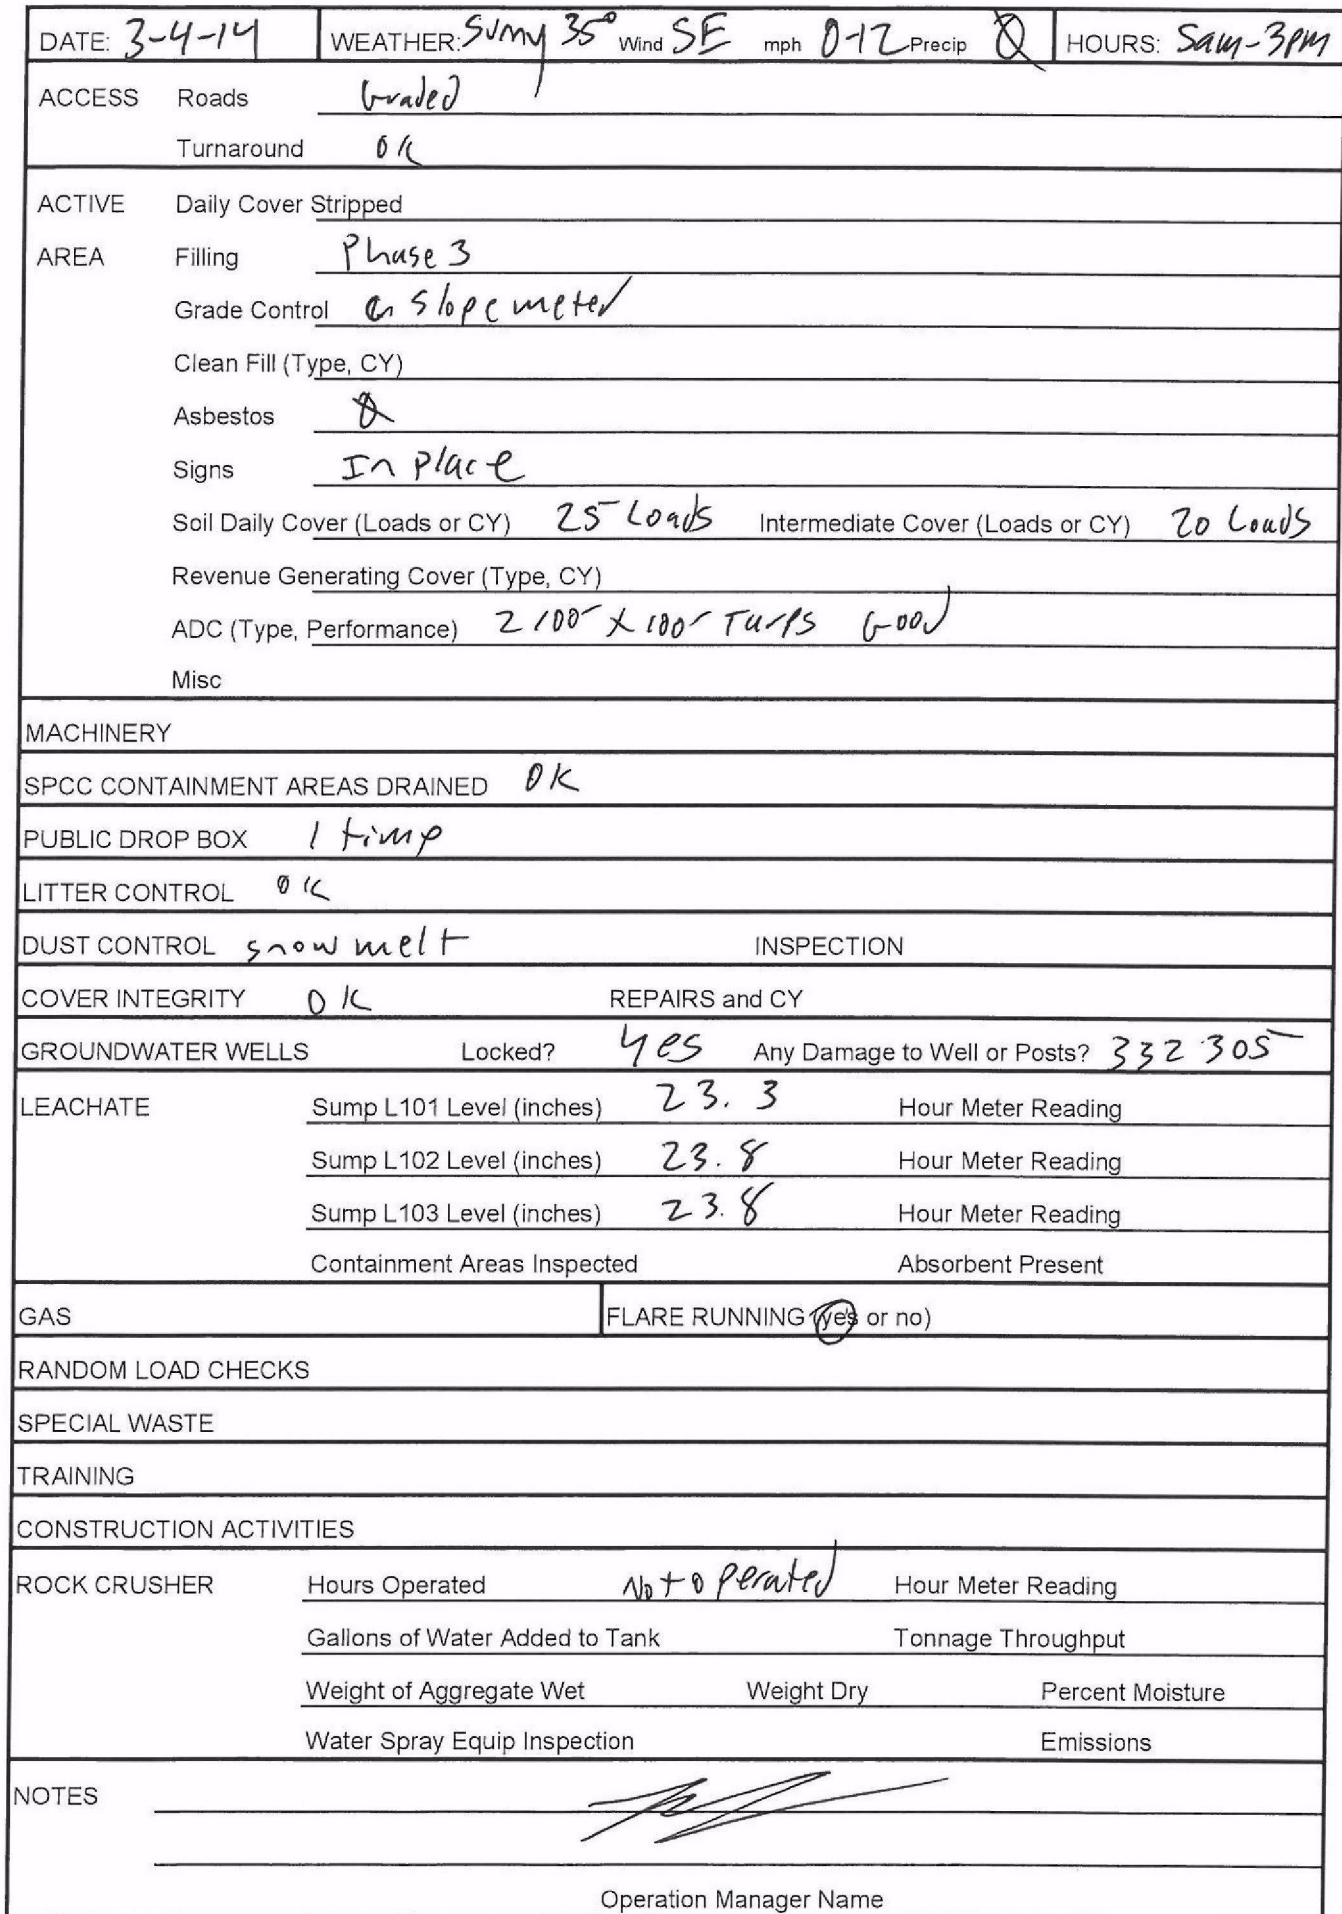 DATE: 3-4-14 WEATHER: Sunny 35° Wind SE mph 0-12 Precip Ø HOURS: 5am-3pm
ACCESS Roads Graded
Turnaround OK
ACTIVE Daily Cover Stripped
AREA Filling Phase 3
Grade Control slope meter
Clean Fill (Type, CY)
Asbestos Ø
Signs In place
Soil Daily Cover (Loads or CY) 25 Loads Intermediate Cover (Loads or CY) 20 Loads
Revenue Generating Cover (Type, CY)
ADC (Type, Performance) 2 100' X 100' Tarps Good
Misc
MACHINERY
SPCC CONTAINMENT AREAS DRAINED OK
PUBLIC DROP BOX 1 time
LITTER CONTROL OK
DUST CONTROL snow melt INSPECTION
COVER INTEGRITY OK REPAIRS and CY
GROUNDWATER WELLS Locked? Yes Any Damage to Well or Posts? 332305
LEACHATE Sump L101 Level (inches) 23.3 Hour Meter Reading
Sump L102 Level (inches) 23.8 Hour Meter Reading
Sump L103 Level (inches) 23.8 Hour Meter Reading
Containment Areas Inspected Absorbent Present
GAS FLARE RUNNING (yes or no)
RANDOM LOAD CHECKS
SPECIAL WASTE
TRAINING
CONSTRUCTION ACTIVITIES
ROCK CRUSHER Hours Operated Not operated Hour Meter Reading
Gallons of Water Added to Tank Tonnage Throughput
Weight of Aggregate Wet Weight Dry Percent Moisture
Water Spray Equip Inspection Emissions
NOTES
Operation Manager Name